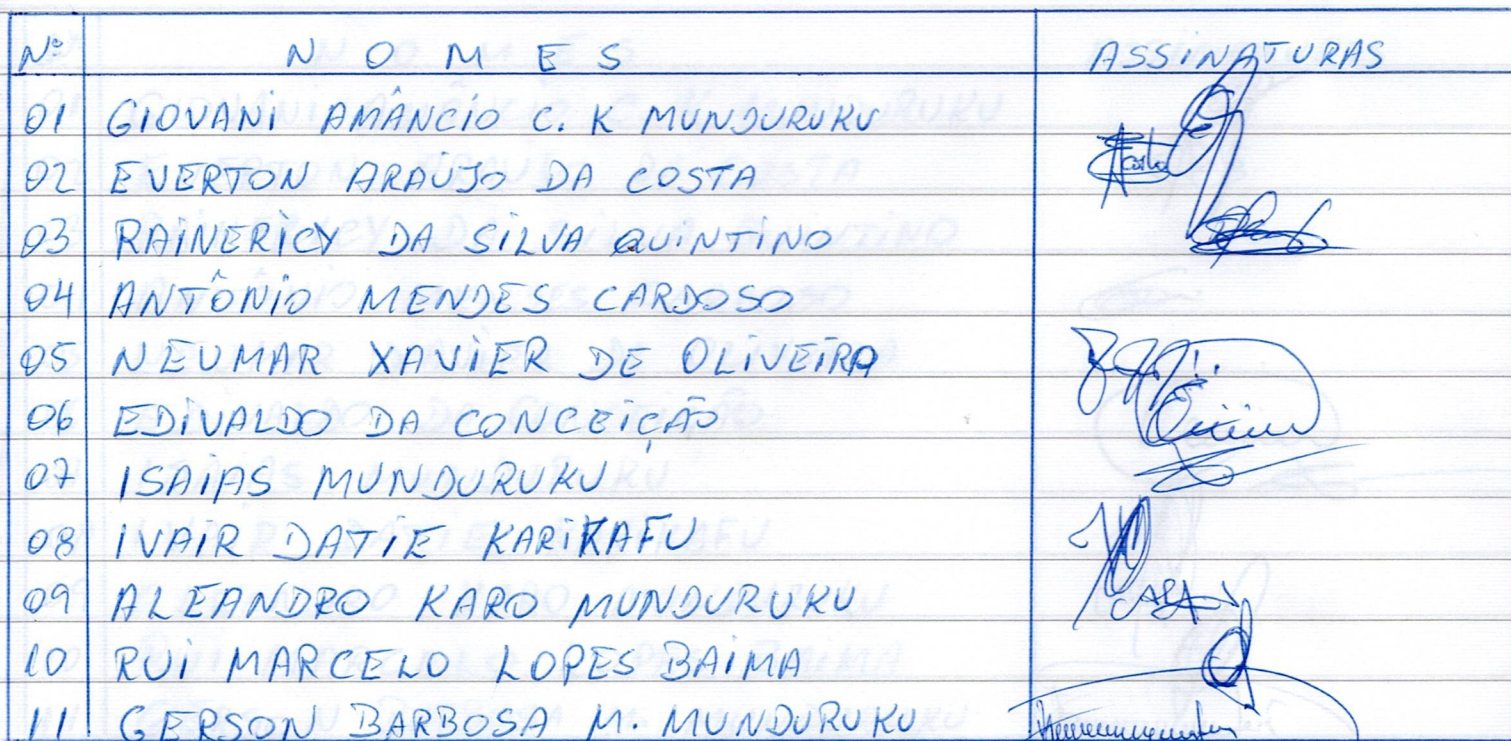 Nº N O M E S ASSINATURAS
01 GIOVANI AMÂNCIO C. K MUNDURUKU
02 EVERTON ARAÚJO DA COSTA
03 RAINERICY DA SILVA QUINTINO
04 ANTÔNIO MENDES CARDOSO
05 NEUMAR XAVIER DE OLIVEIRA
06 EDIVALDO DA CONCEIÇÃO
07 ISAIAS MUNDURUKU
08 IVAIR DATIE KARIKAFU
09 ALEANDRO KARO MUNDURUKU
10 RUI MARCELO LOPES BAIMA
11 GERSON BARBOSA M. MUNDURUKU